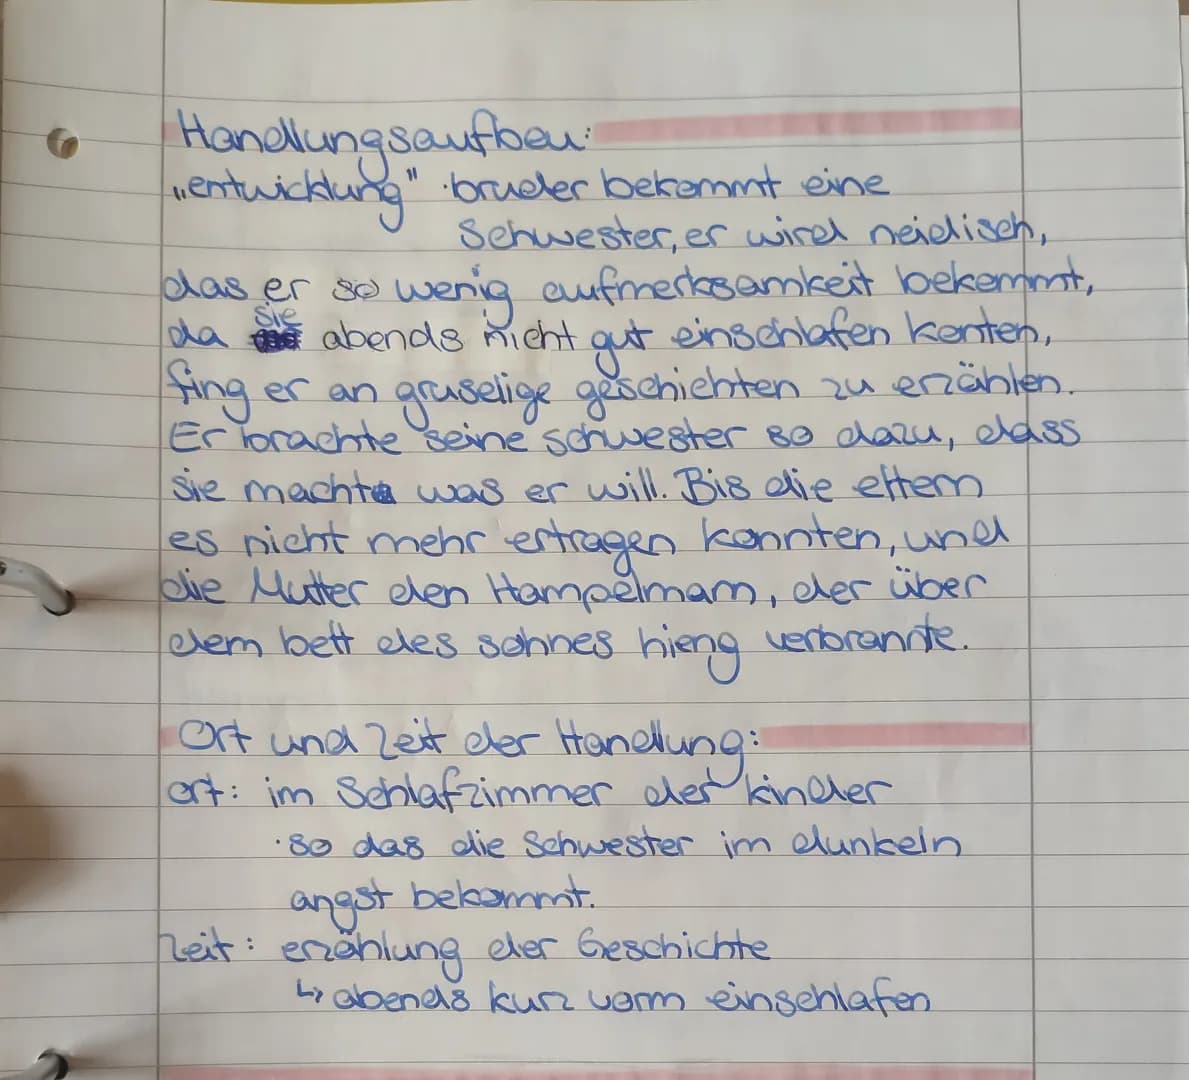 Handlungsaufbau:
„entwicklung" · bruder bekommt eine
Schwester, er wird neidisch,
das er so wenig aufmerksamkeit bekommt,
da sie abends nicht gut einschlafen konten,
fing er an gruselige geschichten zu erzählen.
Er brachte seine schwester so dazu, dass
sie macht was er will. Bis die eltern
es nicht mehr ertragen konnten, und
die Mutter den Hampelmann, der über
dem bett des sohnes hieng verbrannte.
Ort und Zeit der Handlung:
ort: im Schlafzimmer der kinder
· so das die Schwester im dunkeln
angst bekommt.
Zeit: erzählung der Geschichte
↳ abends kurz vorm einschlafen